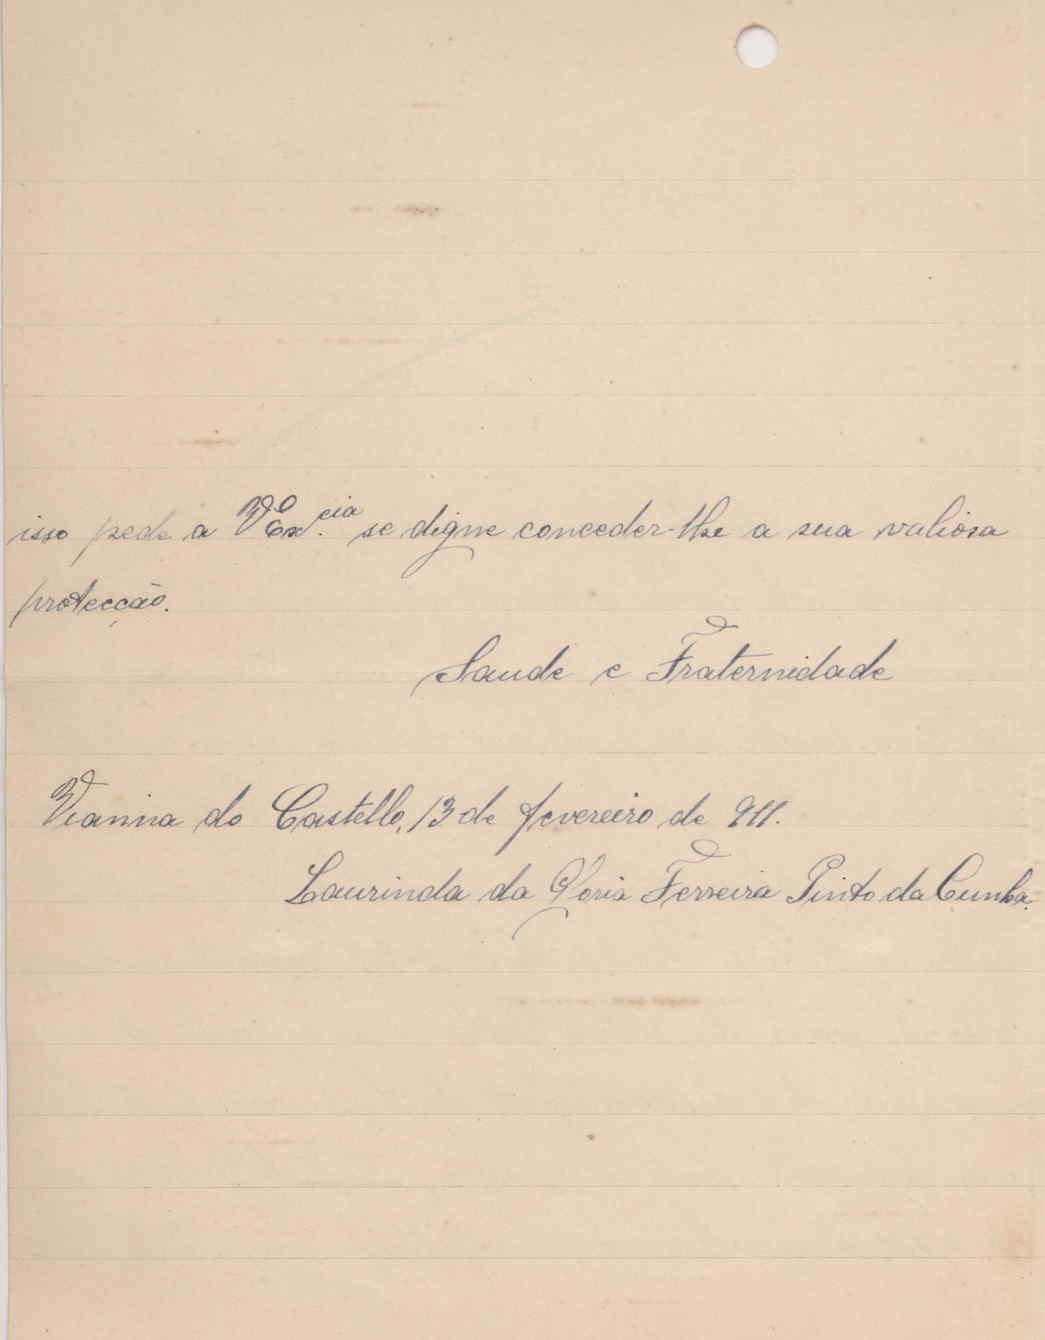 isso pede a V Ex.cia se digne conceder-lhe a sua valiosa
protecção.
Saude e Fraternidade
Vianna do Castello, 13 de fevereiro de 911.
Laurinda da Gloria Ferreira Pinto da Cunha.